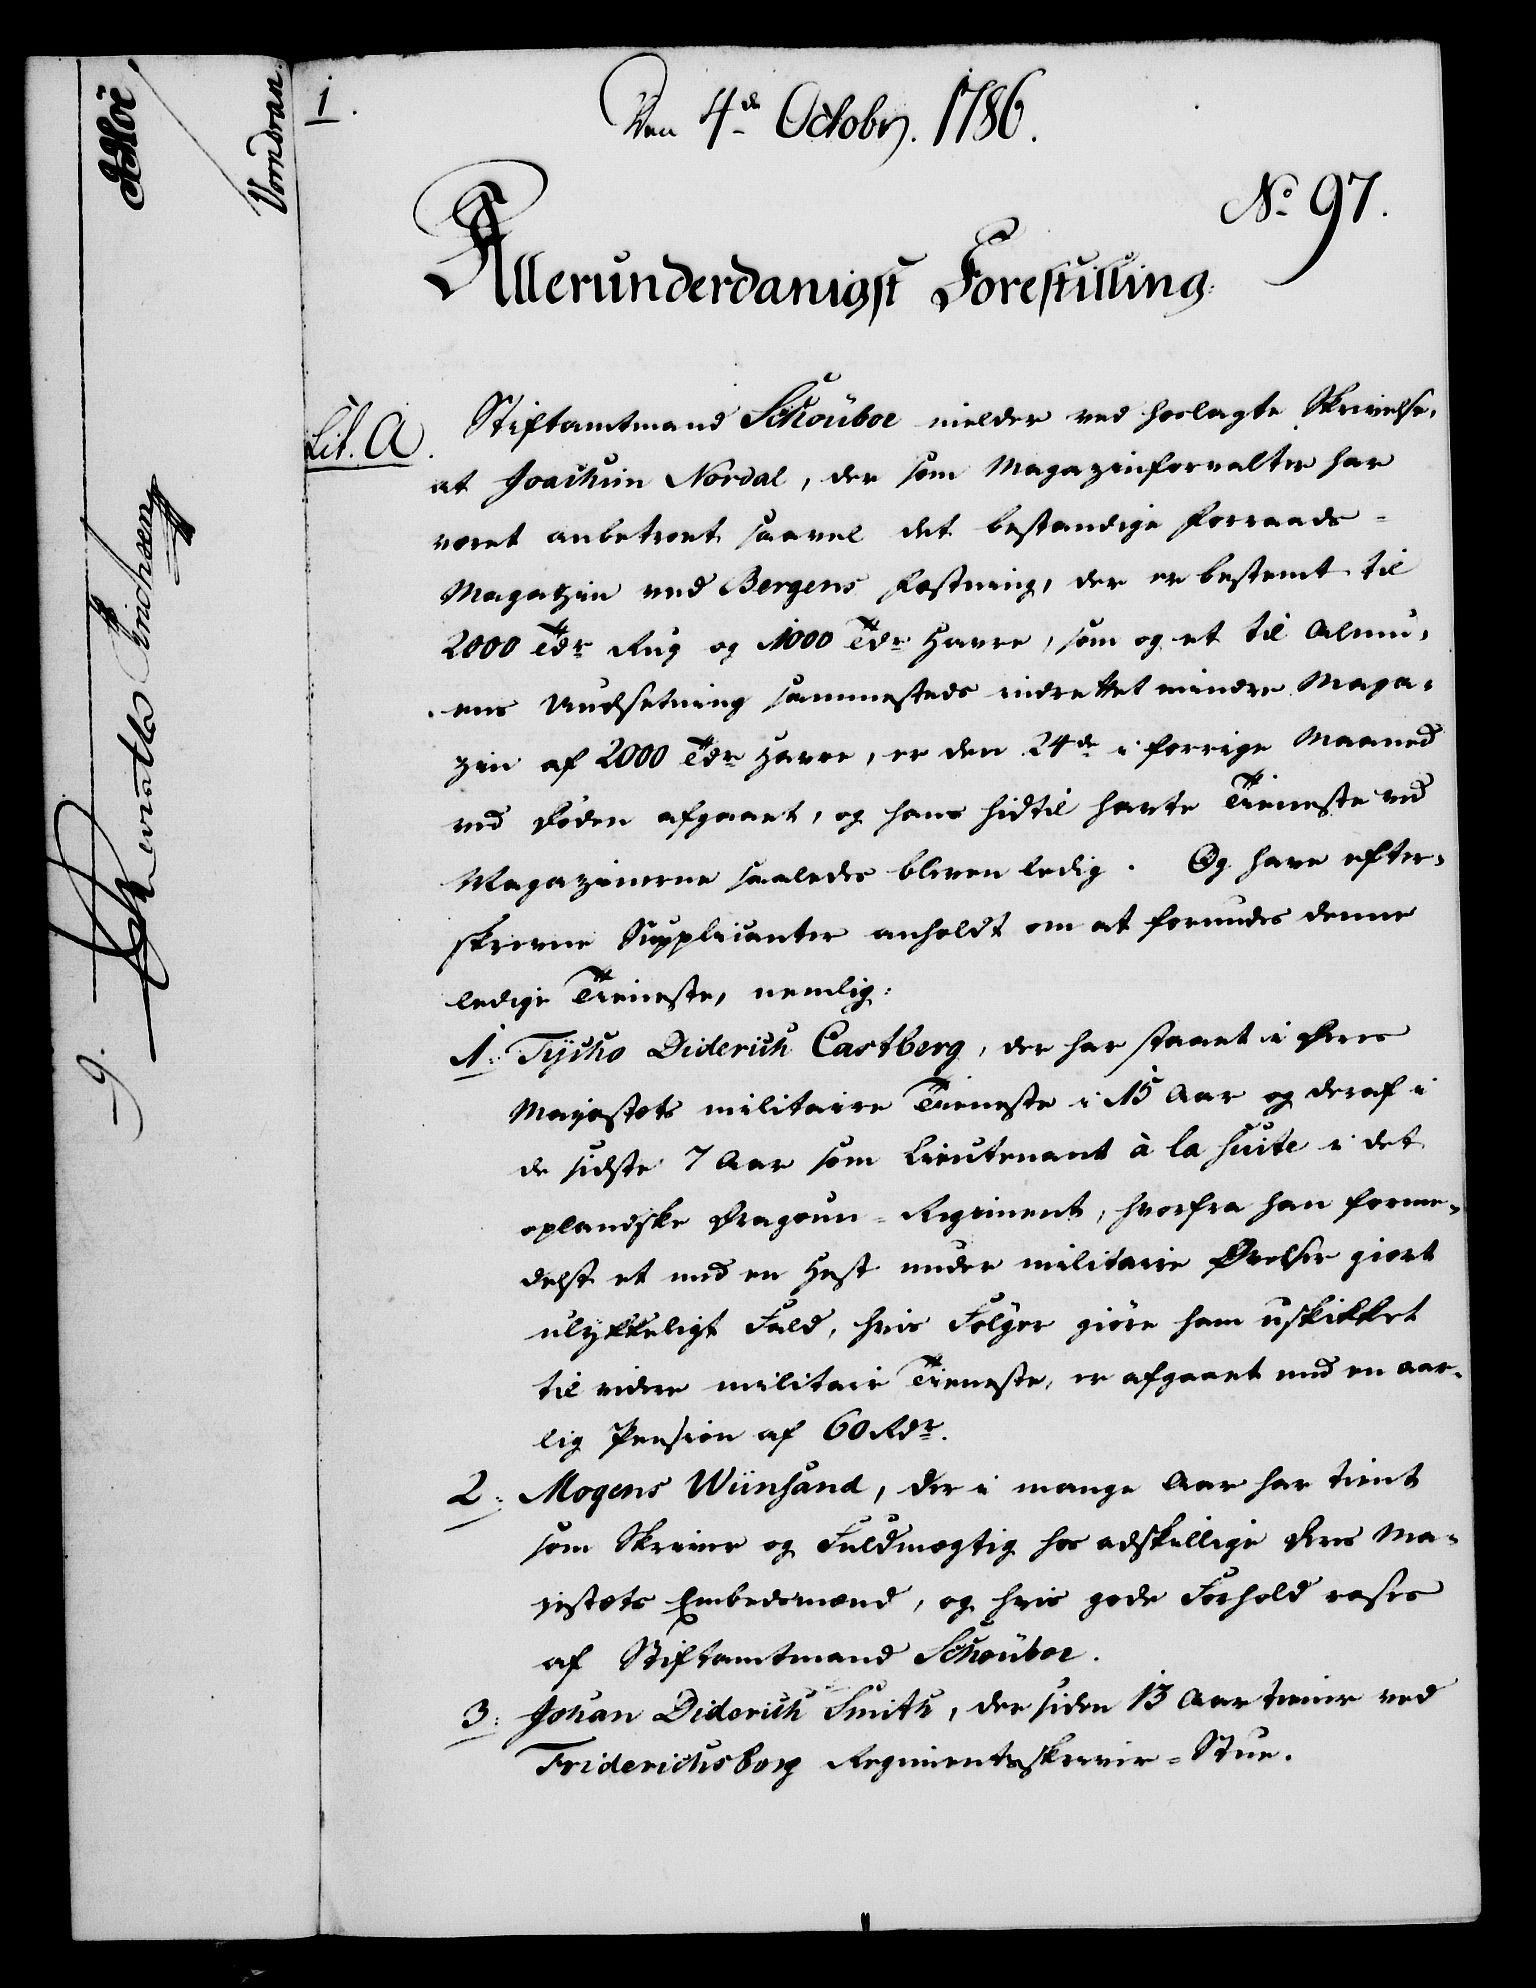 1.
Den 4de Octobr. 1786.
No 97.
Allerunderdanigst Forestilling.
Lit. A.
Stiftamtmand Schouboe melder ved hoslagte Skrivelse,
at Joachim Nordal, der som Magazinforvalter har
været anbetroet saavel det bestandige Forraads-
Magazin ved Bergens Fæstning, der er bestemt til
2000 Tdr Rug og 1000 Tdr Havre, som og et til Almu-
ens Undsetning sammesteds indrettet mindre Maga-
zin af 2000 Tdr Havre, er den 24de i forrige Maaned
ved Døden afgaaet, og hans hidtil havte Tieneste ved
Magazinerne saaledes bleven ledig. Og have efter-
skrevne Supplicanter anholdt om at forundes denne
ledige Tieneste, nemlig:
1: Tycho Diderich Castberg, der har staaet i Deres
Majestæts militaire Tieneste i 15 Aar og deraf i
de sidste 7 Aar som Lieutenant à la suite i det
oplandske Dragoun-Regiment, hvorfra han forme-
delst et med en Hest under militaire Øvelser giort
ulykkeligt Fald, hvis Følger giøre ham uskikket
til videre militair Tieneste, er afgaaet med en aar-
lig Pension af 60 Rdr.
2: Mogens Wiinsand, der i mange Aar har tient
som Skriver og Fuldmægtig hos adskillige Deres Ma-
jestæts Embedsmænd, og hvis gode Forhold roses
af Stiftamtmand Schouboe.
3: Johan Diderich Smith, der siden 13 Aar tiener ved
Friderichsborg Regimentsskriver-Stue.
Vorndran.
Erichsen
9.